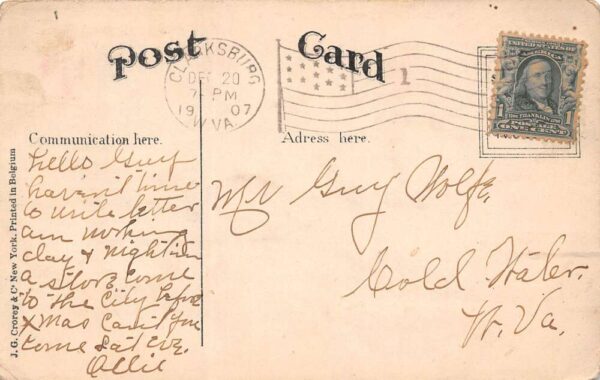 Post Card
CLARKSBURG
DEC 20
7 PM
1907
W.VA.
1
UNITED STATES OF AMERICA
FRANKLIN
POSTAGE
1 ONE CENT 1
Communication here.
Adress here.
J. G. Crorey & Co New York. Printed in Belgium
Hello Guy
haven't time
to write letter
am working
day & night in
a store come
to the City before
Xmas Can't you
come Sat eve.
Ollie
Mr Guy Wolfe.
Cold Water.
W. Va.